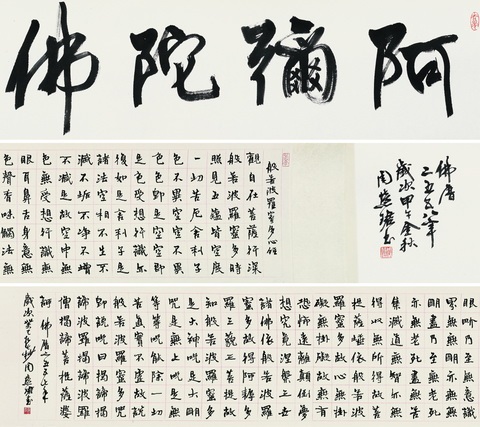 阿彌陀佛
佛曆
二五五八年
歲次甲午金秋
般若波羅蜜多心經
觀自在菩薩行深
般若波羅蜜多時
照見五蘊皆空度
一切苦厄舍利子
色不異空空不異
色色即是空空即
是色受想行識亦
復如是舍利子是
諸法空相不生不
滅不垢不淨不增
不減是故空中無
色無受想行識無
眼耳鼻舌身意無
色聲香味觸法無
眼界乃至無意識
界無無明亦無無
明盡乃至無老死
亦無老死盡無苦
集滅道無智亦無
得以無所得故菩
提薩埵依般若波
羅蜜多故心無罣
礙無罣礙故無有
恐怖遠離顛倒夢
想究竟涅槃三世
諸佛依般若波羅
蜜多故得阿耨多
羅三藐三菩提故
知般若波羅蜜多
是大神咒是大明
咒是無上咒是無
等等咒能除一切
苦真實不虛故說
般若波羅蜜多咒
即說咒曰揭諦揭
諦波羅揭諦波羅
僧揭諦菩提薩婆
訶
佛曆二五五七年
歲次癸巳